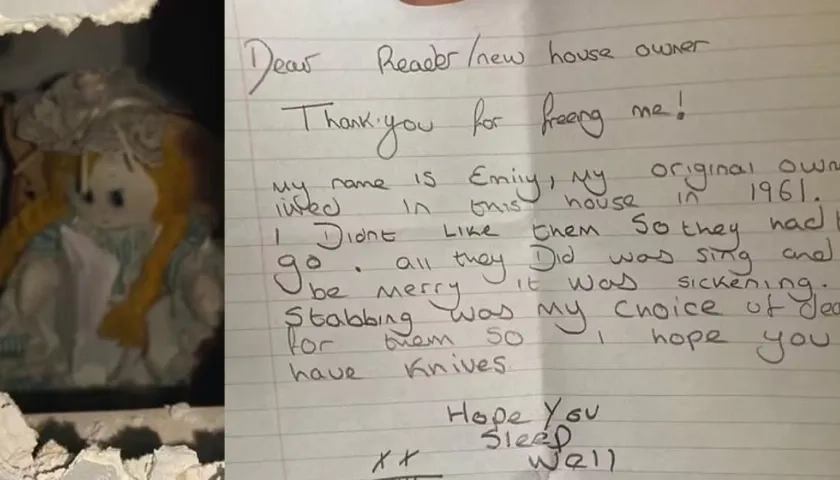 Dear Reader/new house owner
Thank.you for freeing me!
My name is Emily, My original own
lived in this house in 1961.
I Didnt Like them so they had
go. all they Did was sing and
be merry it was sickening.
Stabbing was my choice of dea
for them so I hope you
have Knives
Hope You
Sleep
Well
xx